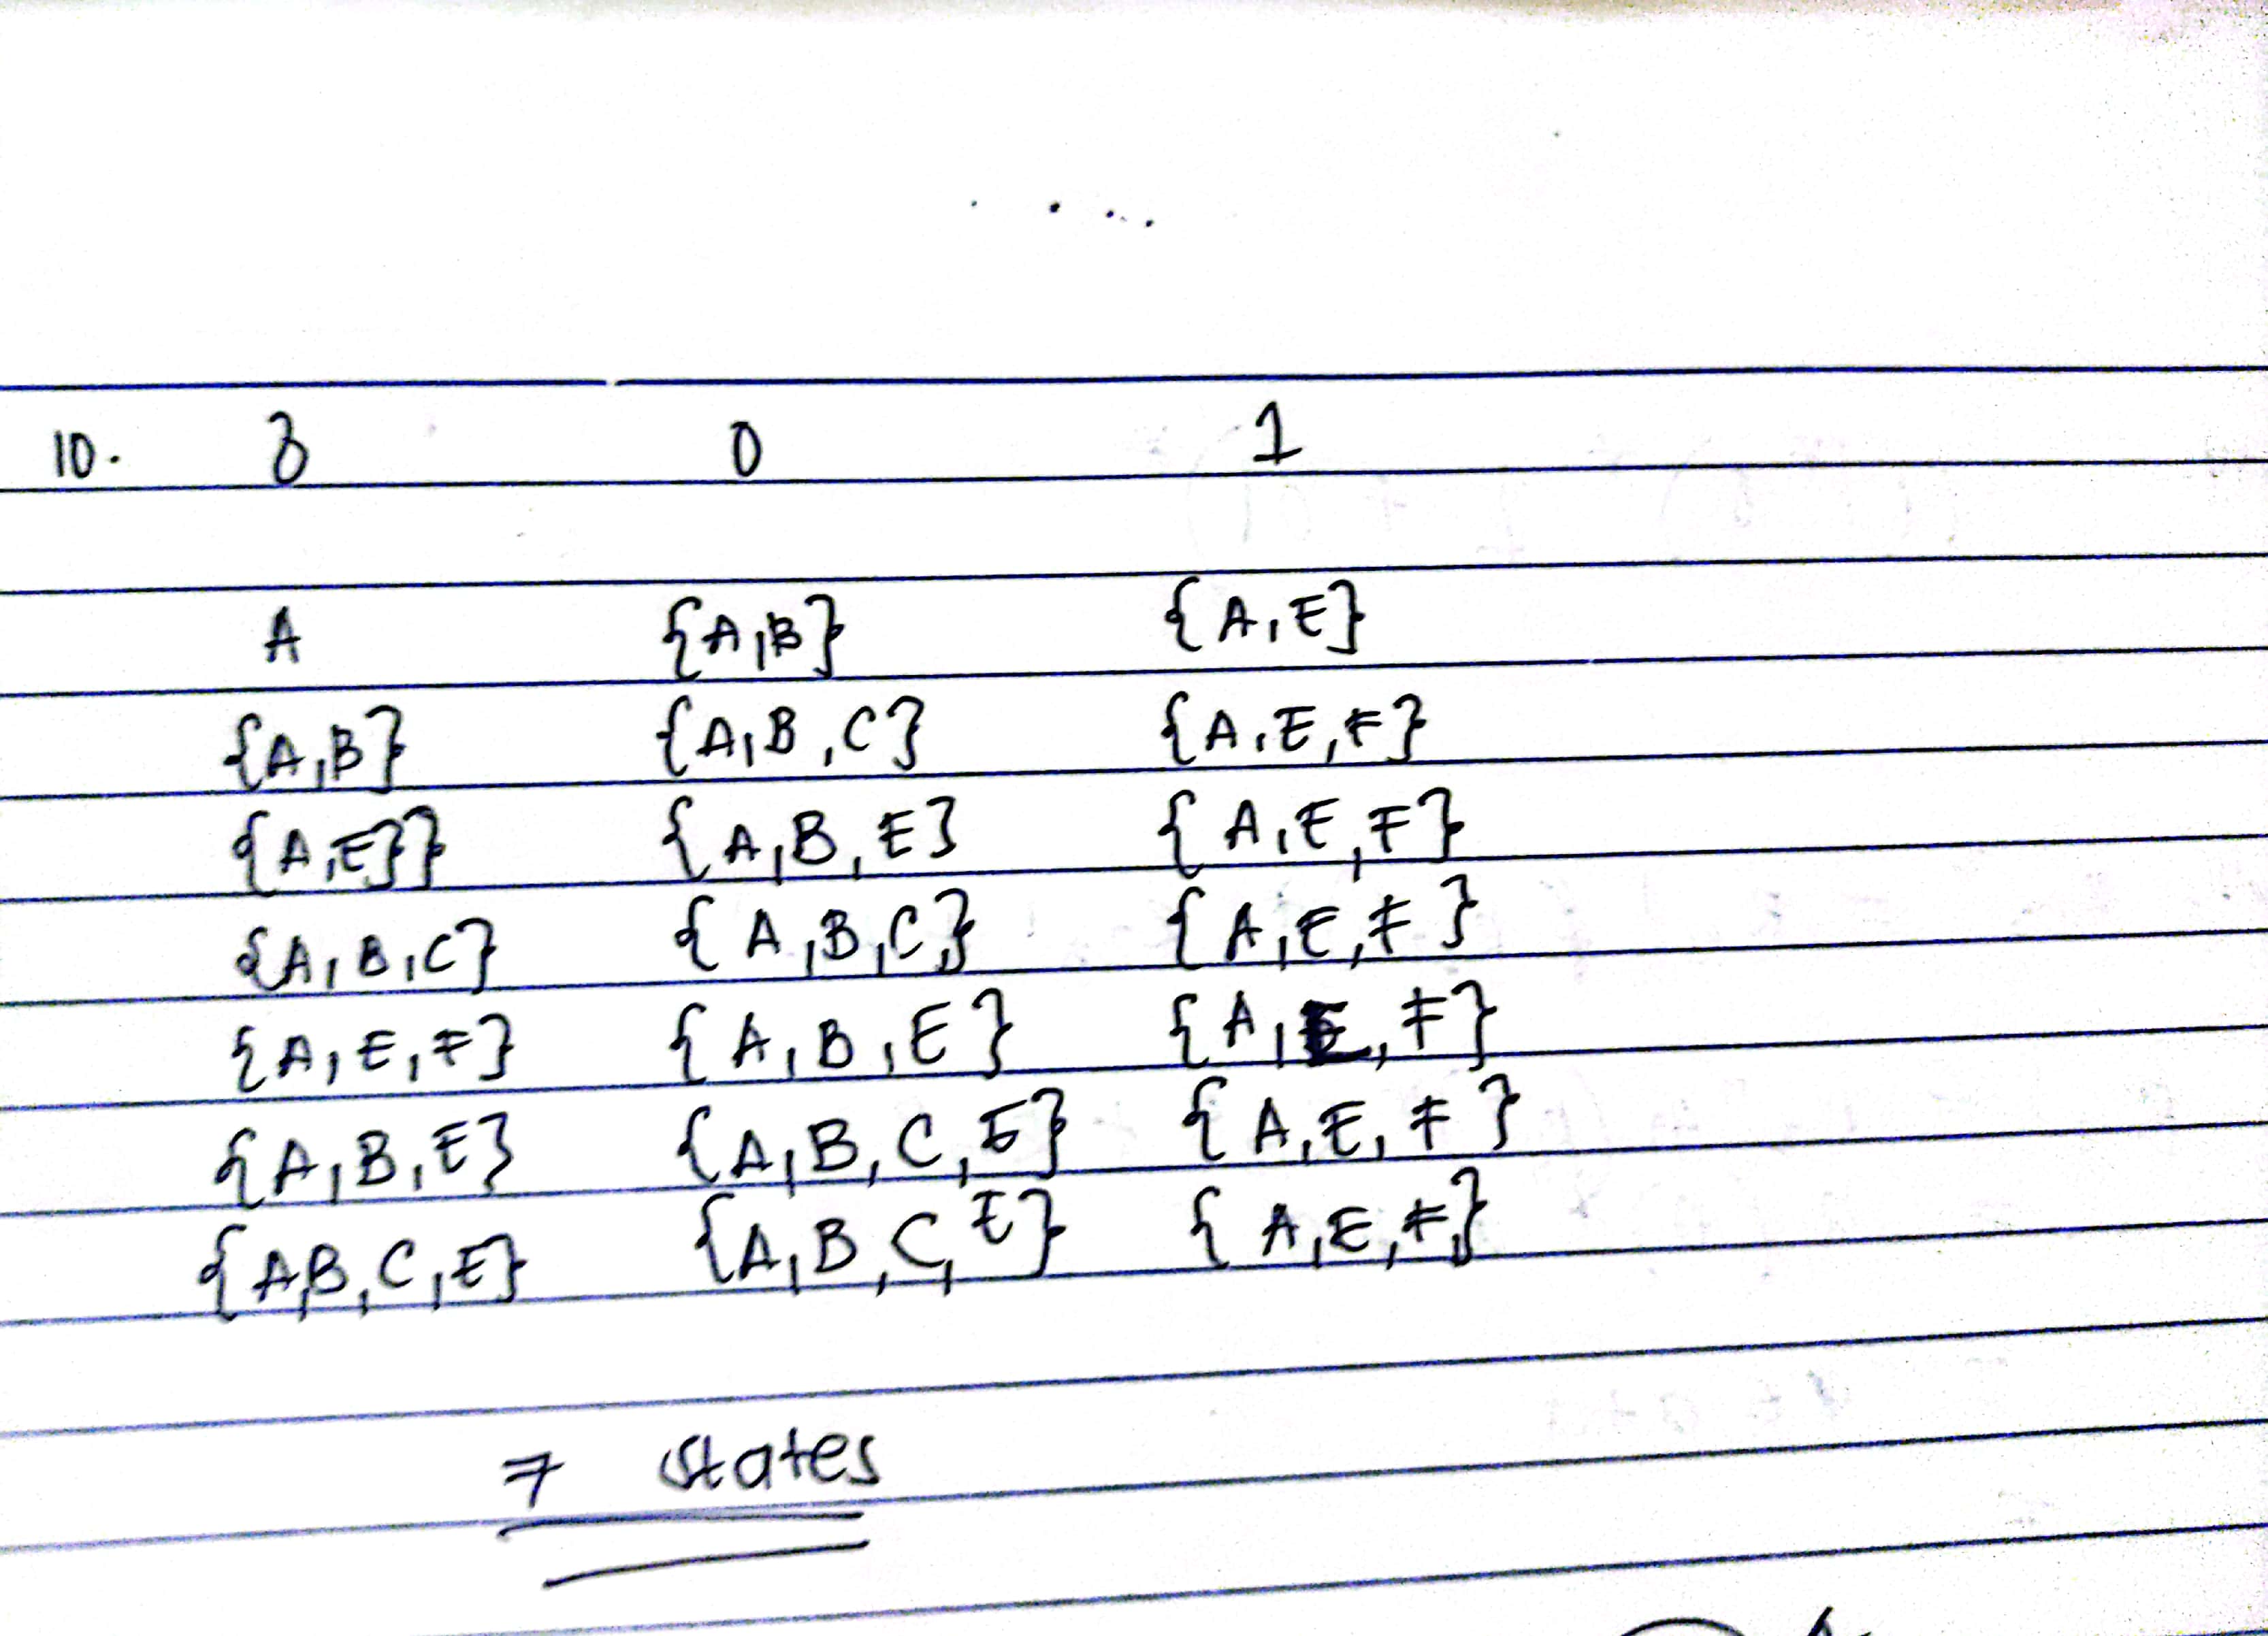 10. δ 0 1
A {A,B} {A,E}
{A,B} {A,B,C} {A,E,F}
{A,E}} {A,B,E} {A,E,F}
{A,B,C} {A,B,C} {A,E,F}
{A,E,F} {A,B,E} {A,E,F}
{A,B,E} {A,B,C,E} {A,E,F}
{A,B,C,E} {A,B,C,E} {A,E,F}
7 states